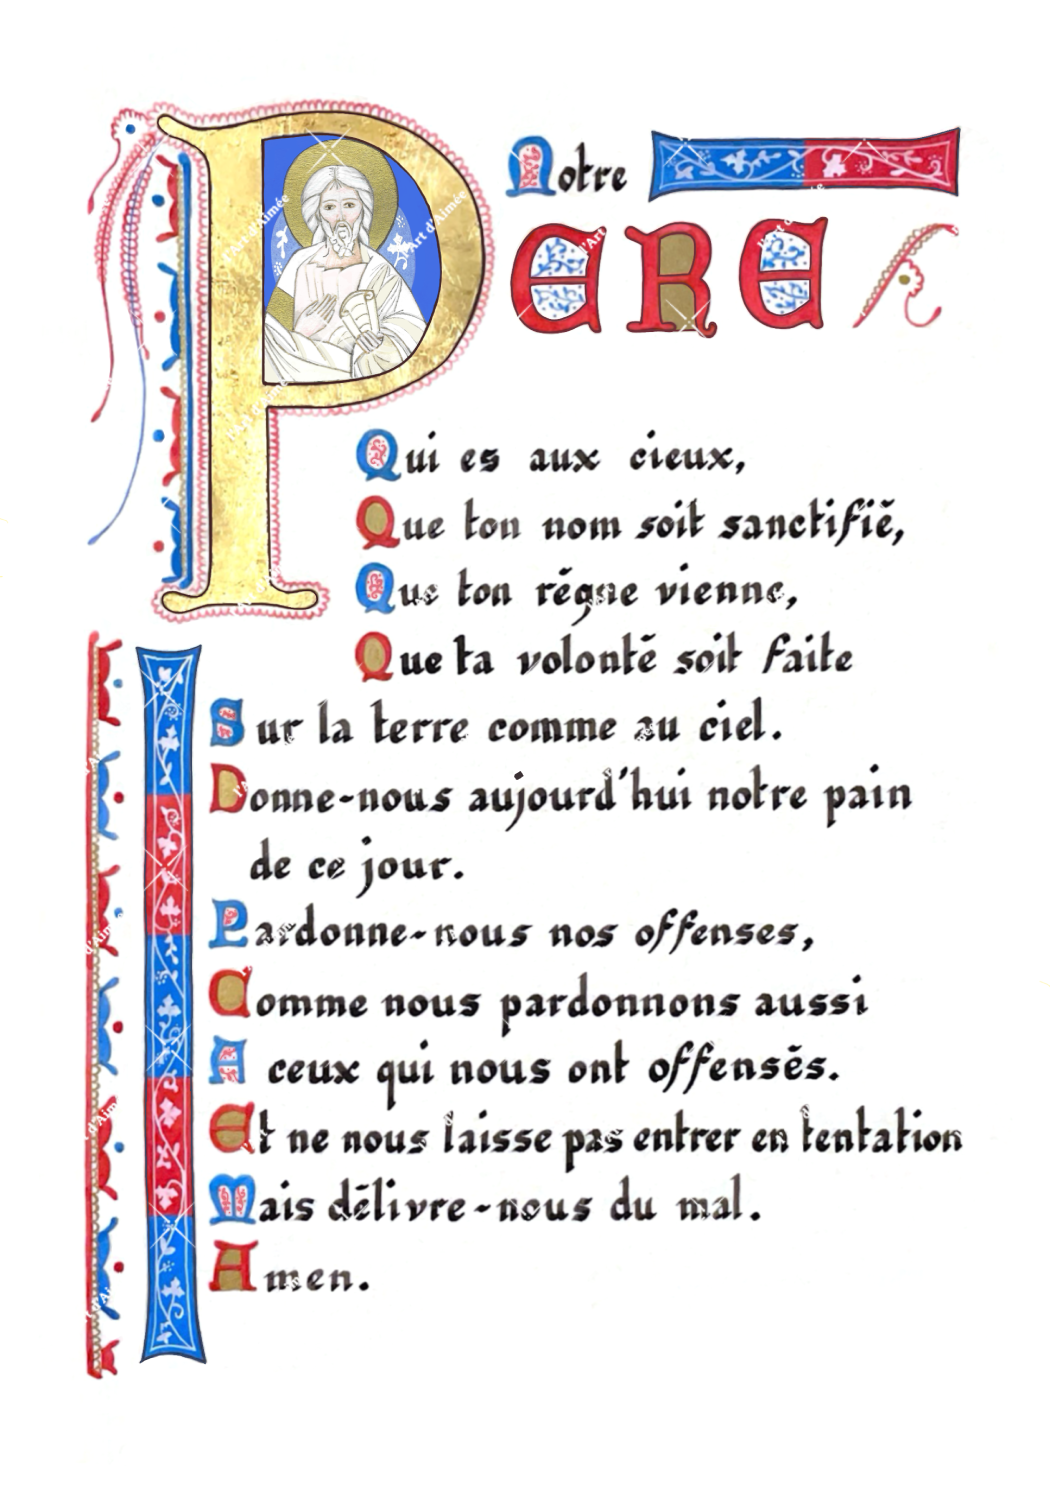 Notre
PERE
Qui es aux cieux,
Que ton nom soit sanctifié,
Que ton régne vienne,
Que ta volonté soit faite
Sur la terre comme au ciel.
Donne-nous aujourd'hui notre pain
de ce jour.
Pardonne-nous nos offenses,
Comme nous pardonnons aussi
A ceux qui nous ont offensés.
Et ne nous laisse pas entrer en tentation
Mais délivre-nous du mal.
Amen.
l'Art d'Aimée